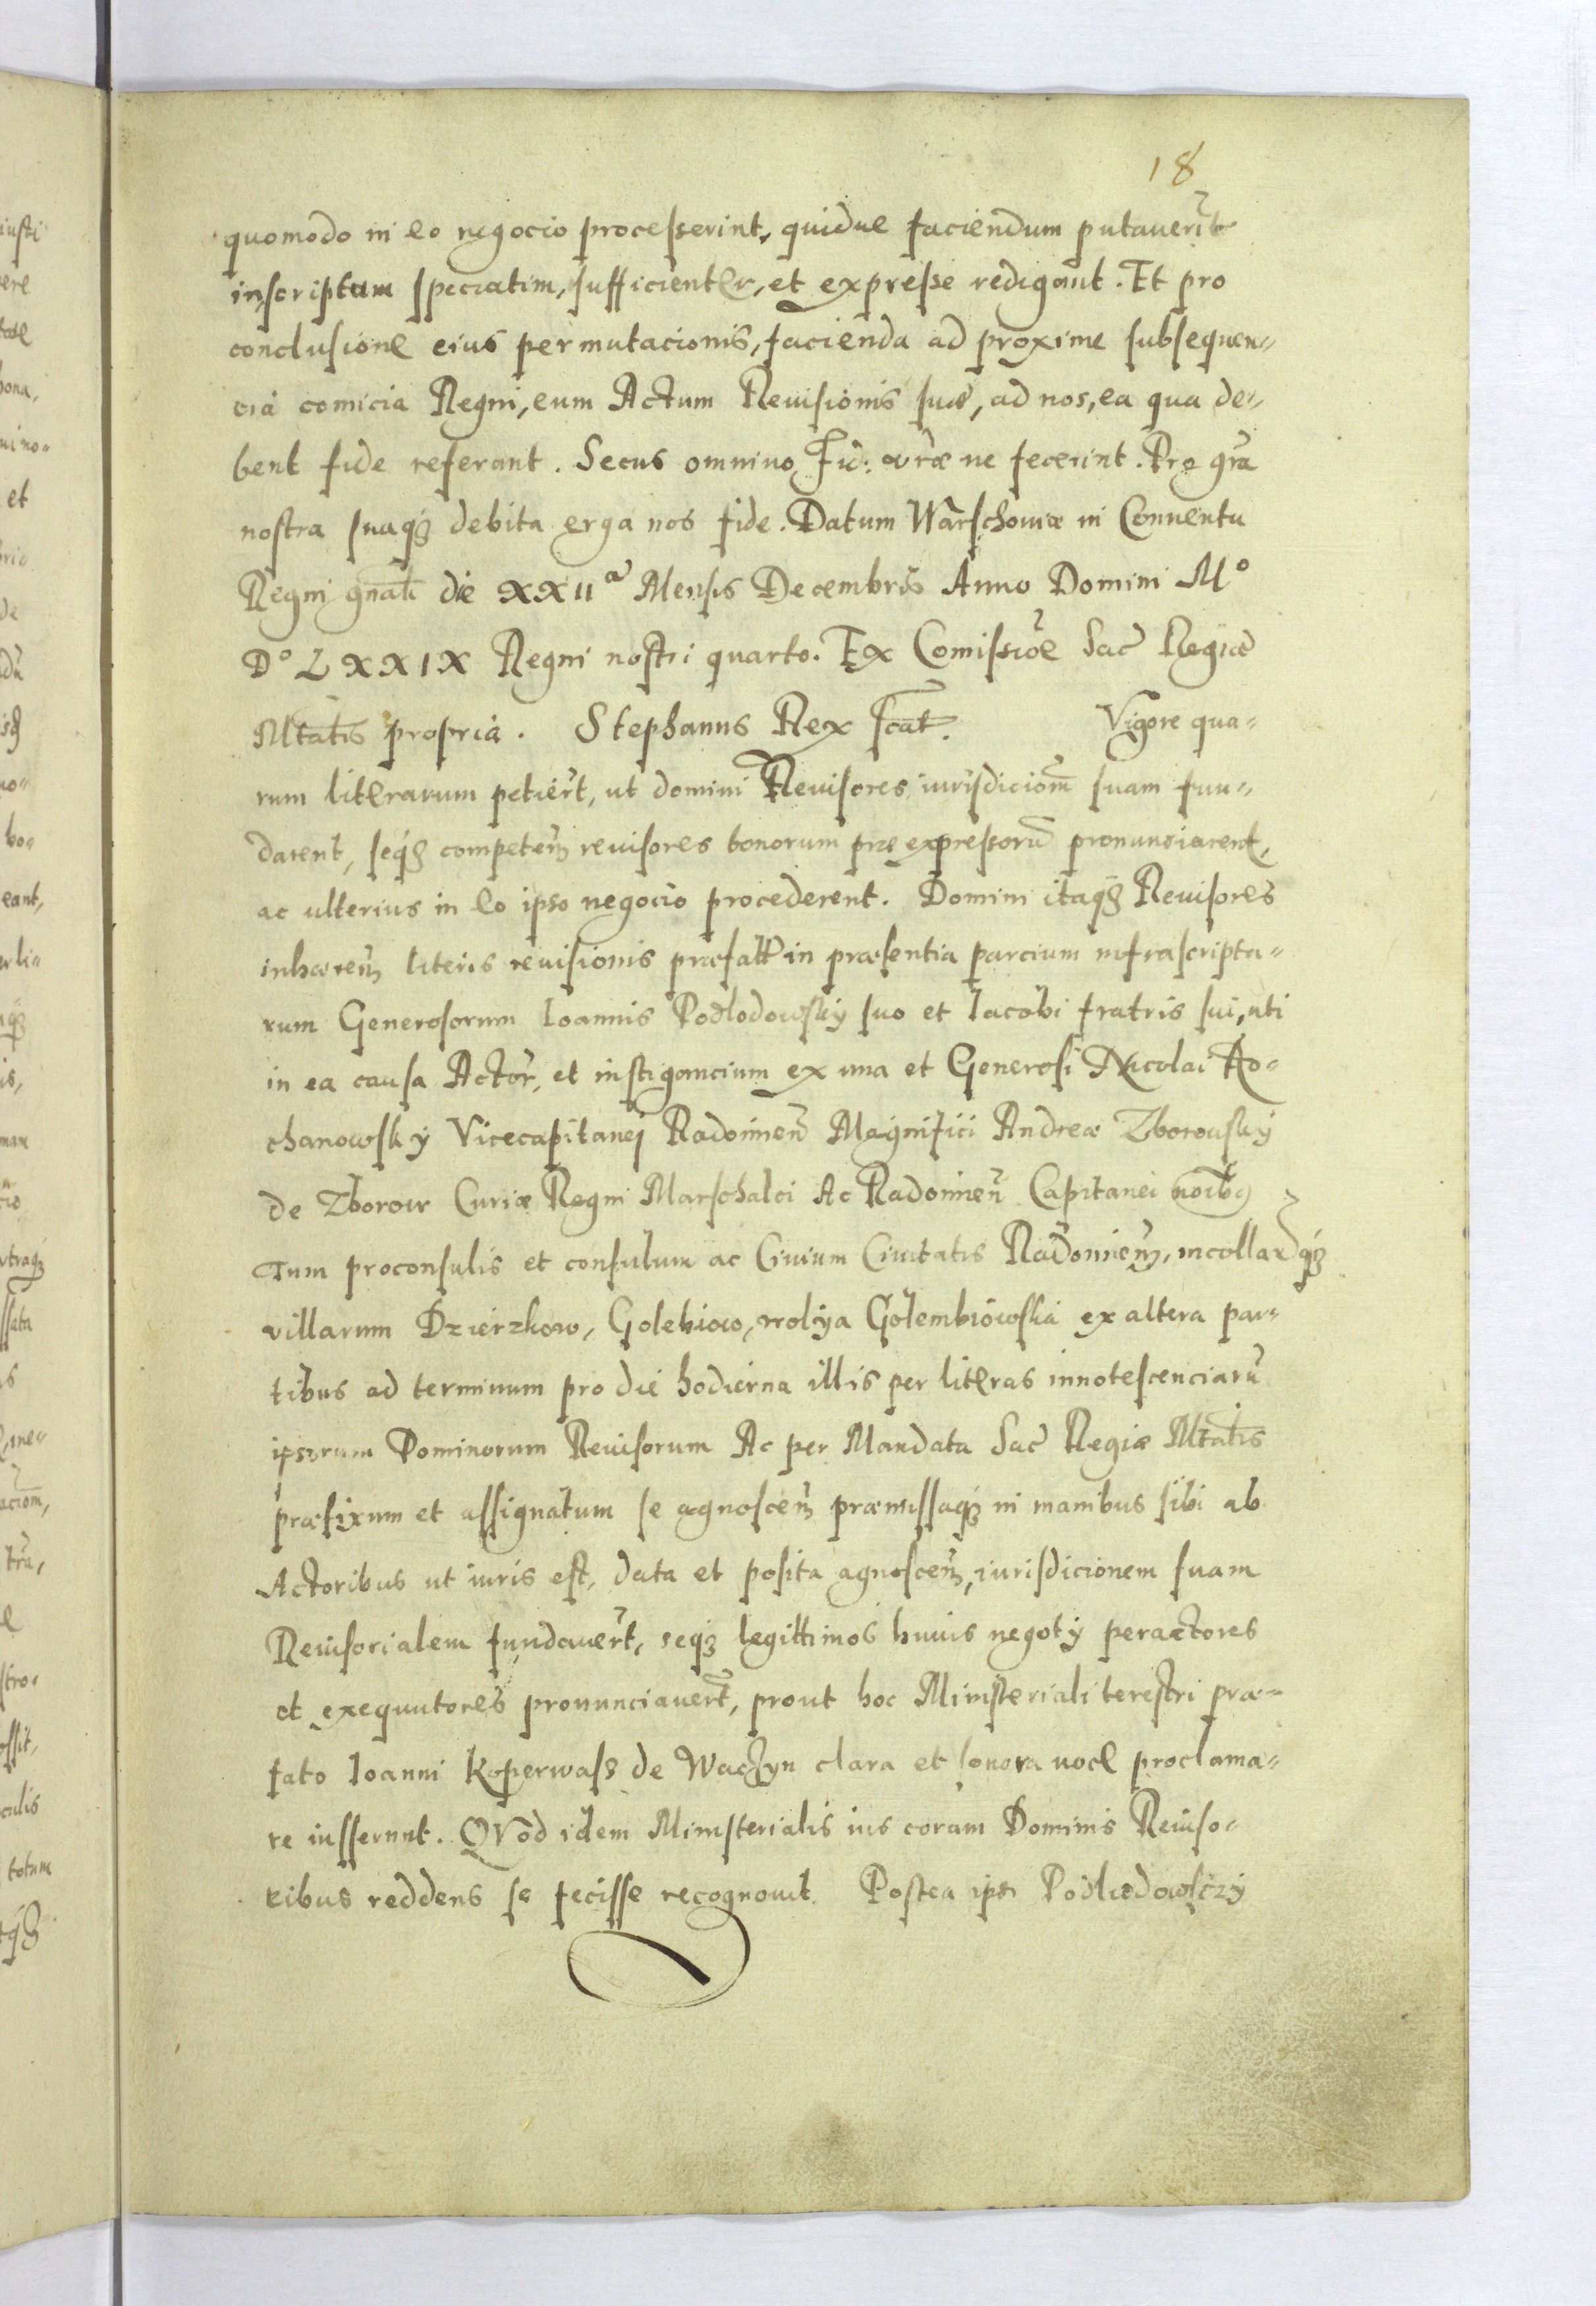 18
quomodo in eo negocio processerint, quidue faciendum putauerīt
inscriptum speciatim, sufficienter, et expresse redigant. Et pro
conclusione eius permutacionis, facienda ad proxime subsequen-
cia comicia Regni, eum Actum Reuisionis suæ, ad nos, ea qua de-
bent fide referant. Secus omnino, Fid: vr̃æ ne fecerint. Pro gr̃a
nostra suaqꝫ debita erga nos fide. Datum Warschouiæ in Conuentu
Regni gnãli die XXII ͣ Mensis Decembris Anno Domini M°
D° LXXIX Regni nostri quarto. Ex Comissiõe Sac̃ Regiæ
Mtatis propria. Stephanus Rex sc̃at. Vigore qua-
rum literarum petiert̃, ut domini Reuisores iurisdiciom̃ suam fun-
darent, seqꝫ competeñ reuisores bonorum præexpressorũ pronunciarent,
ac ulterius in eo ipso negocio procederent. Domini itaqꝫ Reuisores
inhæreñ literis reuisionis præfatt in præsentia parcium infrascripta-
rum Generosorum Ioannis Podlodowsky suo et Iacobi fratris sui, uti
in ea causa Actor̃, et instigancium ex una et Generosi Nicolai Ko-
chanowsky Vicecapitanei Radomieñ Magnifici Andreæ Zborowsky
de Zborow Curiæ Regni Marschalci Ac Radomieñ Capitanei noĩbꝫ
Tum proconsulis et consulum ac Ciuium Ciuitatis Radomieñ, incollar̃qꝫ
villarum Dzierzkow, Golebiow, wolya Golembiowska ex altera par-
tibus ad terminum pro die hodierna illis per literas innotescenciarũ
ipsorum Dominorum Reuisorum Ac per Mandata Sac̃ Regiæ Mtatis
præfixum et assignatum se agnosceñ præmissaqꝫ in manibus sibi ab
Actoribus ut iuris est, data et posita agnosceñ, iurisdicionem suam
Reuisorialem fundauert̃, seqꝫ legittimos huius negoty peractores
et exequutores pronunciauert̃, prout hoc Ministeriali terestri præ-
fato Ioanni Koperwass de Waczyn clara et sonora uoce proclama-
re iusserunt. QVod idem Ministerialis ius coram Dominis Reuiso-
ribus reddens se fecisse recognouit. Postea ipsi Podlodowsczy